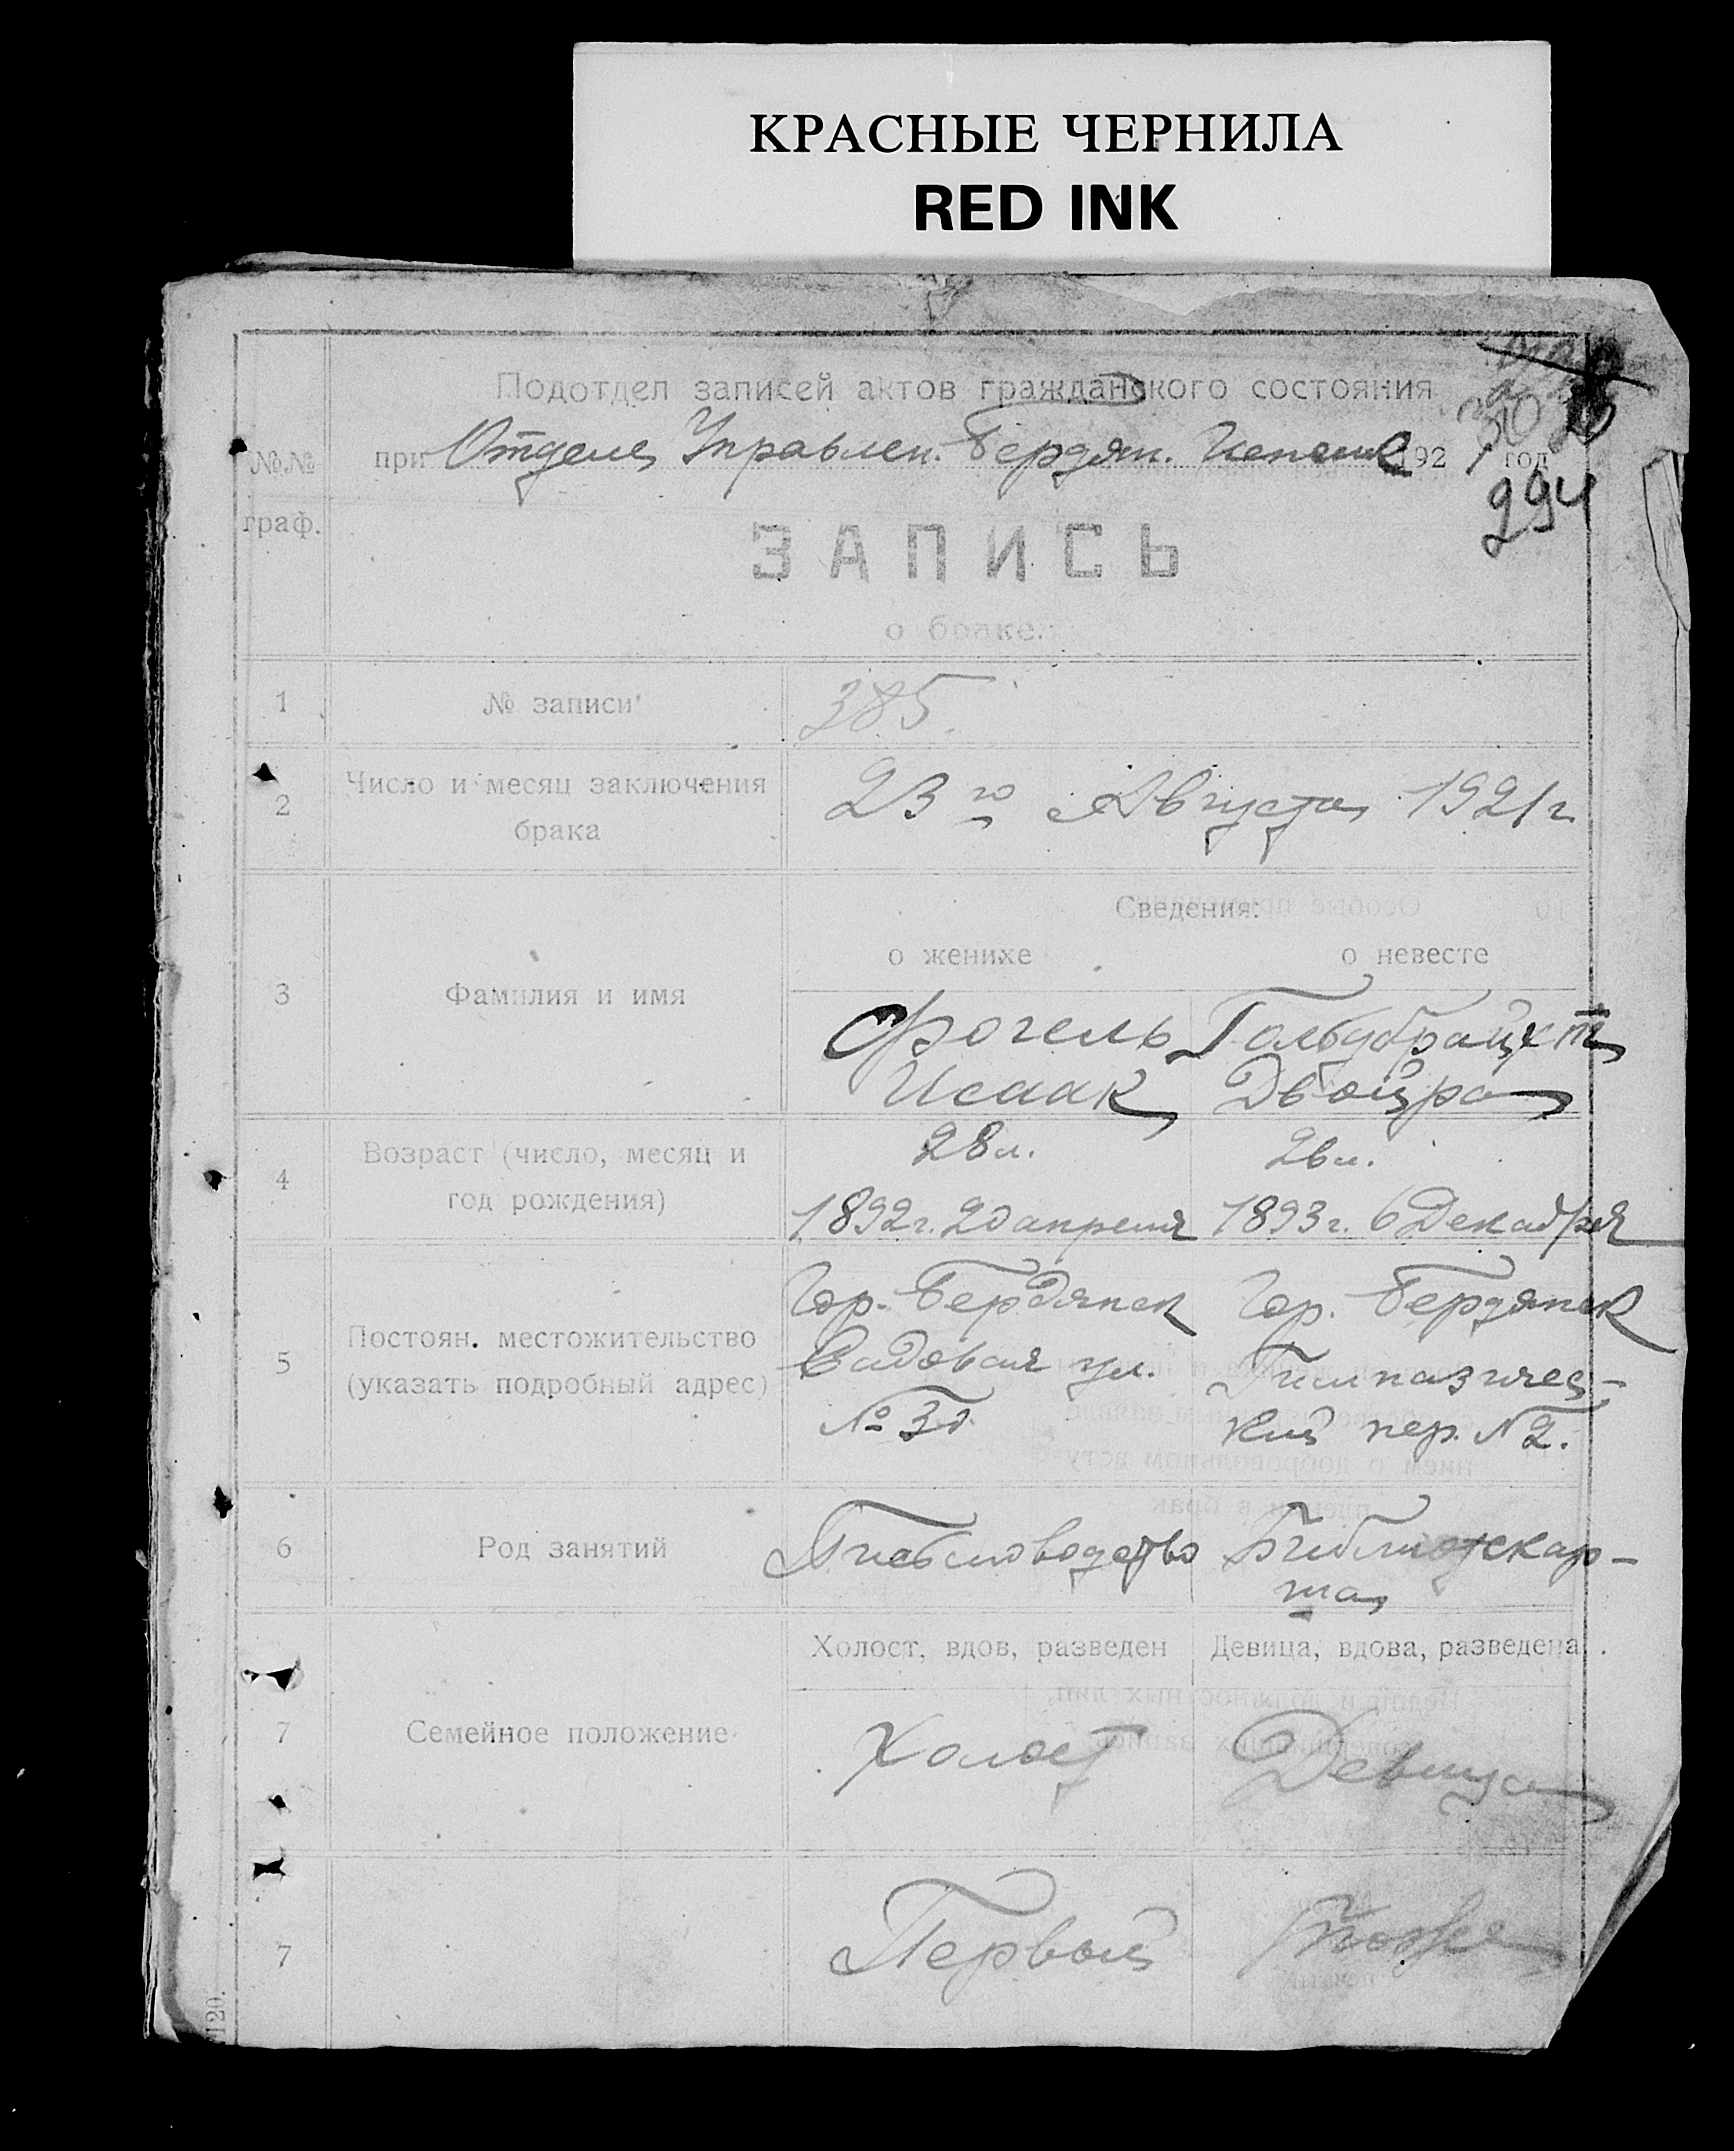 КРАСНЫЕ ЧЕРНИЛА
RED INK
Подотдел записей актов гражданского состояния
№№ граф.
при Отделе Управлен. Бердян. 1921 год
294
ЗАПИСЬ
о браке.
1 № записи 385.
2 Число и месяц заключения брака 23го Августа 1921 г.
Сведения:
о женихе о невесте
3 Фамилия и имя
Фогель Гольдбрайхт
Исаак Двойра
4 Возраст (число, месяц и год рождения)
28 л. 26 л.
1892 г. 20 апреля 1893 г. 6 Декабря
5 Постоян. местожительство (указать подробный адрес)
Гор. Бердянск Гор. Бердянск
Садовая ул. Гимназичес-
№ кий пер. № 2.
6 Род занятий
Библиотекар-
ша
Холост, вдов, разведен Девица, вдова, разведена
7 Семейное положение
Холост Девица
7 Первый Тоже
120.